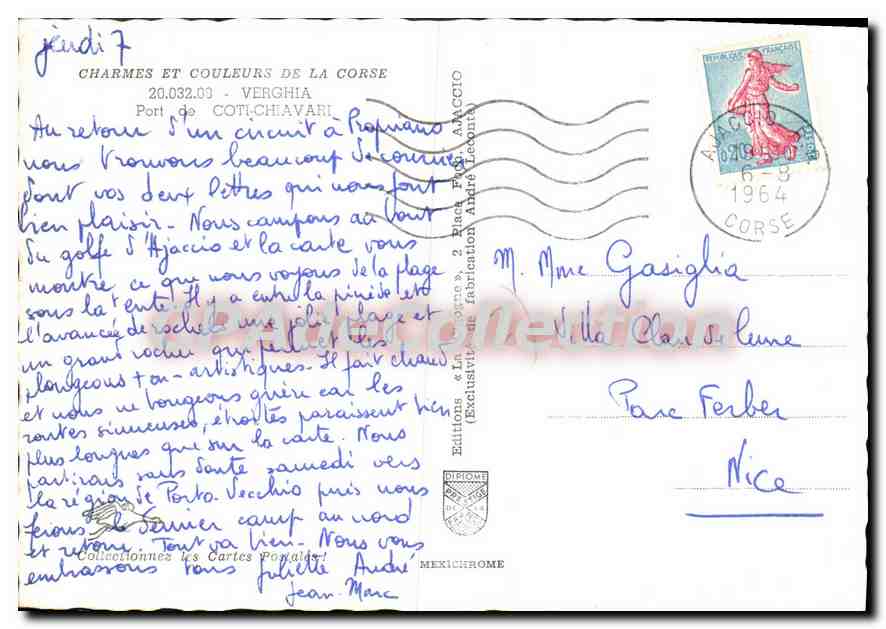 jeudi 7
CHARMES ET COULEURS DE LA CORSE
20.032.03 - VERGHIA
Port de COTI-CHIAVARI
Au retour d'un circuit à Propriano
nous trouvons beaucoup de courrier
dont vos deux lettres qui nous font
bien plaisir. Nous campons au bout
du golfe d'Ajaccio et la carte vous
montre ce que nous voyons de la plage
sous la tente. Il y a entre la pinède et
l'avancée de rochers une jolie plage et
un grand rocher qui permet les
plongeons + ou - artistiques. Il fait chaud
et nous ne bougeons guère car les
routes sinueuses, étroites paraissent bien
plus longues que sur la carte. Nous
partirons sans doute samedi vers
la région de Porto-Vecchio puis nous
ferons le dernier camp au nord
et retour. Tout va bien. Nous vous
embrassons tous Juliette André
Jean-Marc
Collectionnez les Cartes Postales !
Editions « La Cigogne », 2 Place Foch, AJACCIO
(Exclusivité de fabrication André Leconte)
DIPLOME
PRESTIGE
DE LA
FRANCE
MEXICHROME
REPUBLIQUE FRANÇAISE
AJACCIO
6-8
1964
CORSE
M. Mme Gasiglia
Villa Clair de lune
Parc Ferber
Nice
CPArecollection